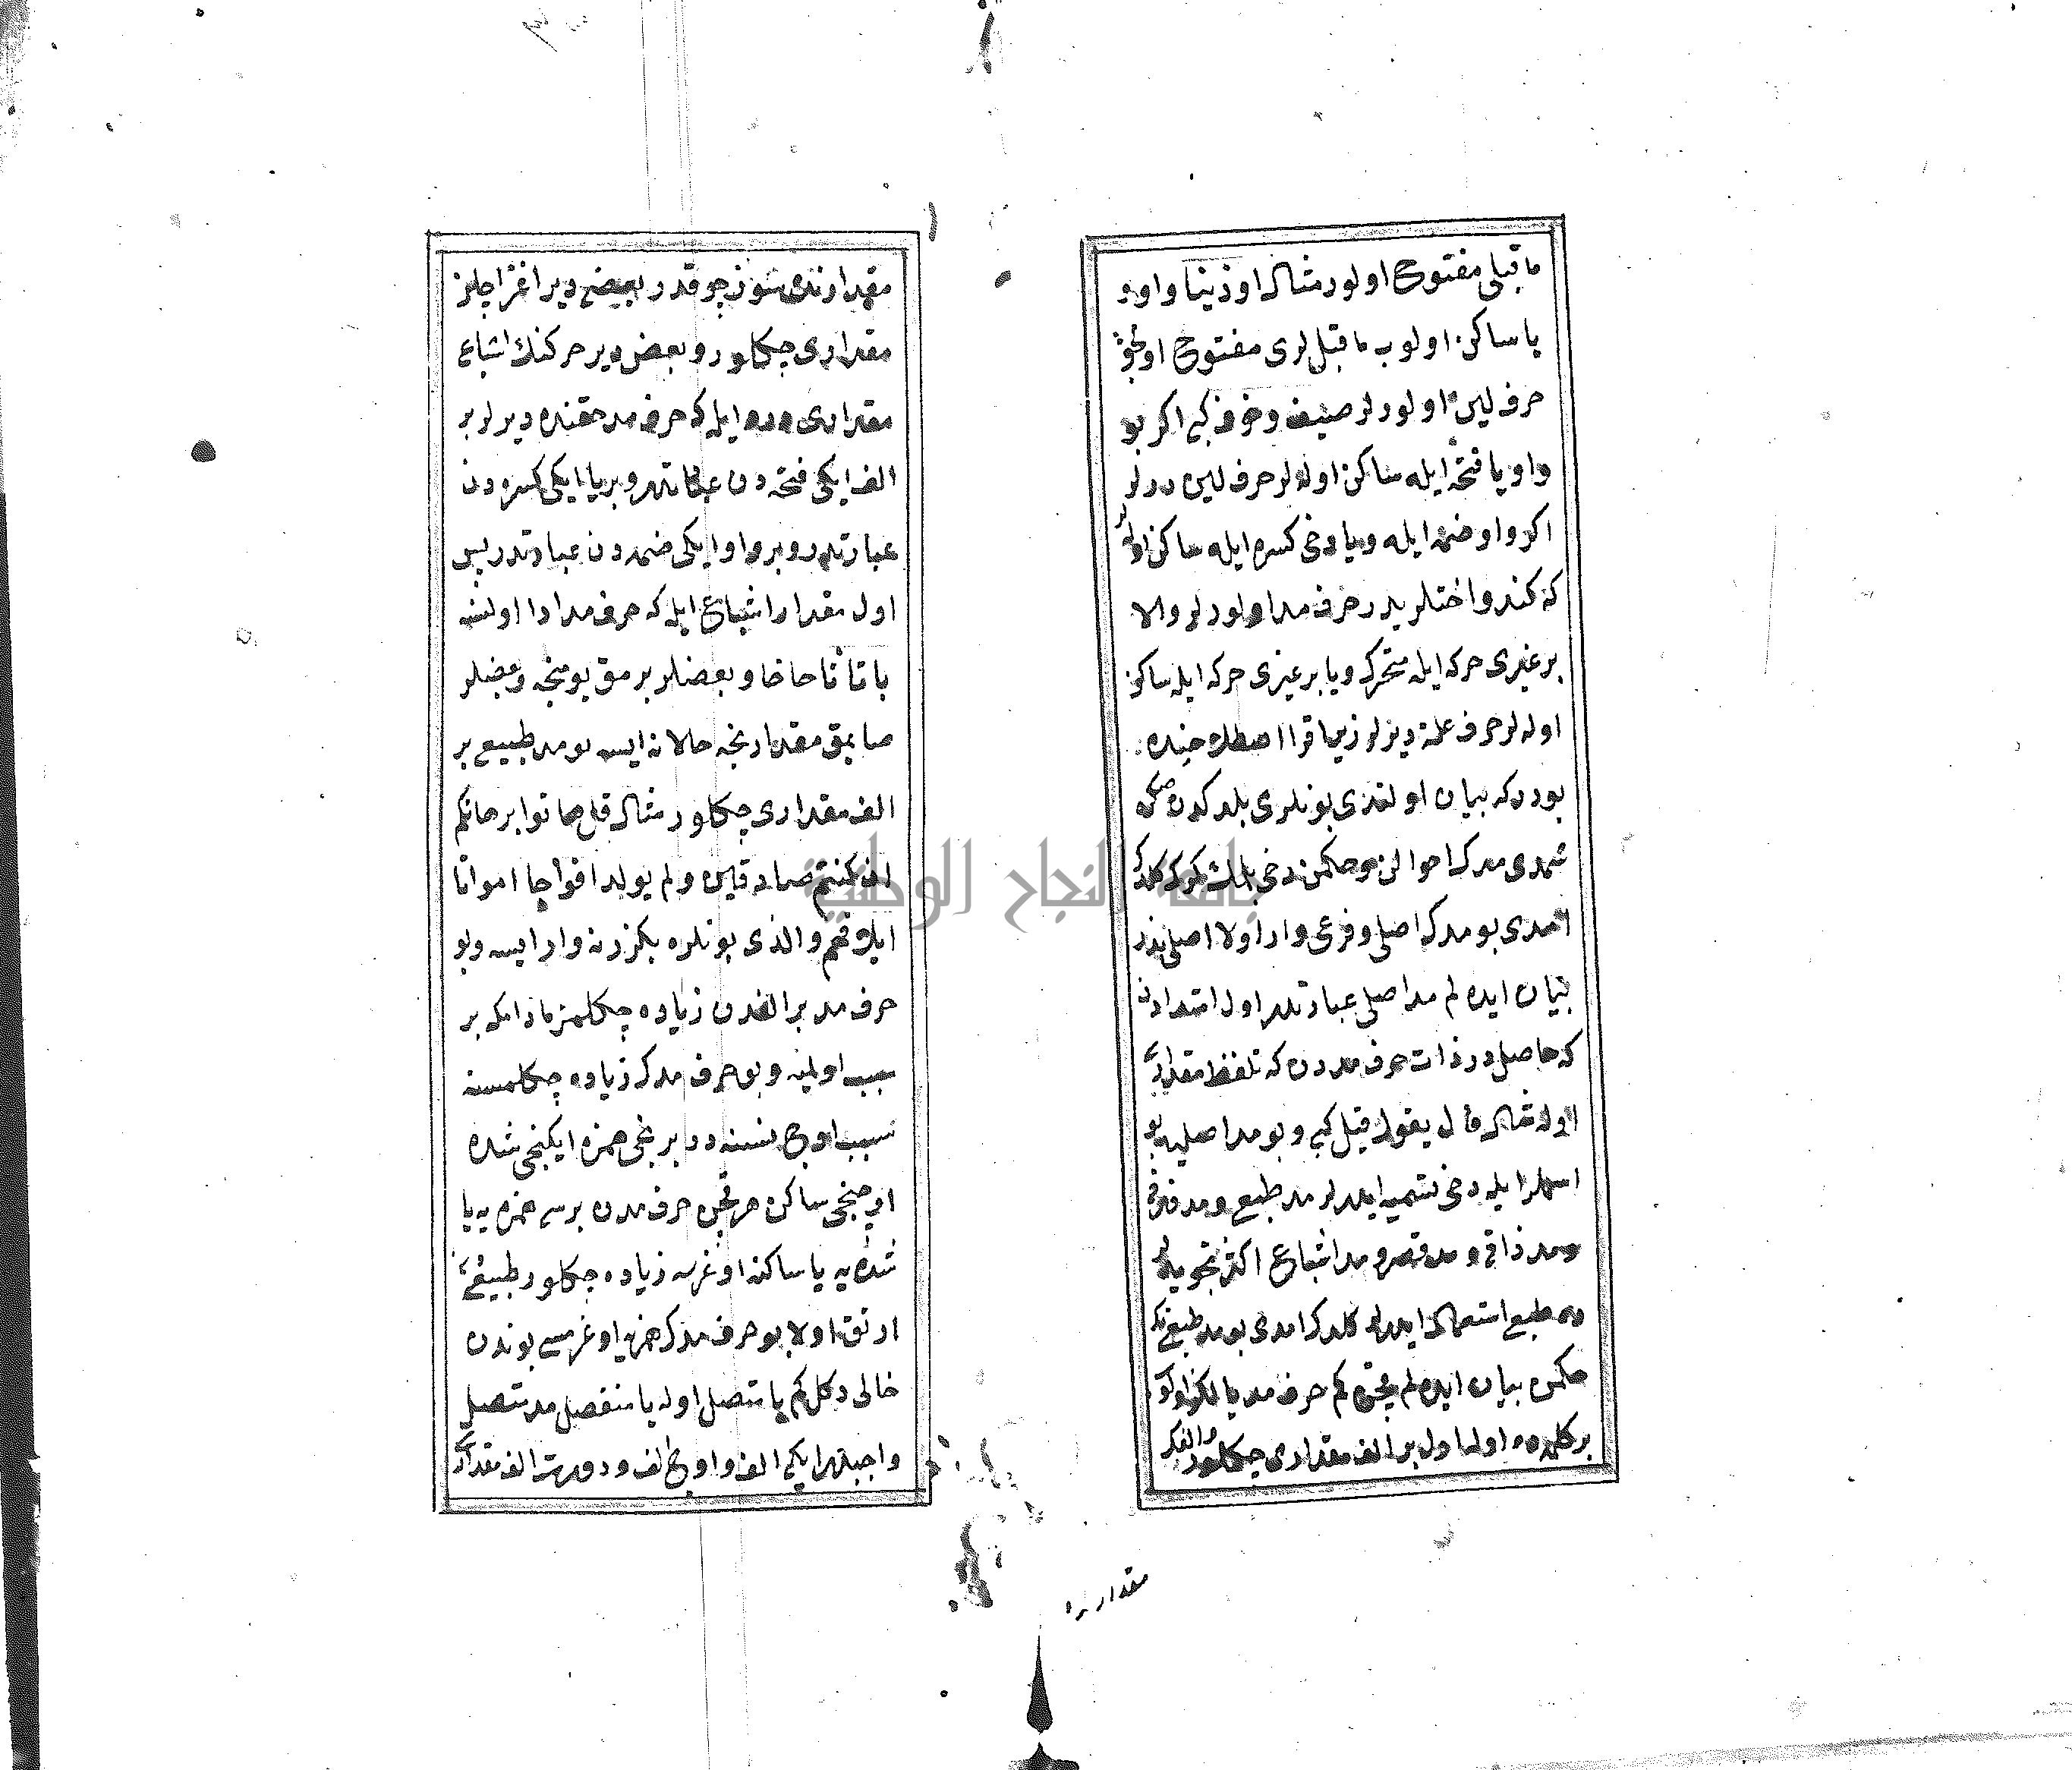 ما قبلی مفتوح اولور مثال اوذینا واو و
یا ساکن اولوب ما قبل لری مفتوح اولیجق
حرف لین اولورلر صیف و خوف کبی اکر بو
واو یا فتحه ایله ساکن اوله لر حرف لین درلر
اکر واو ضمه ایله ویا دخی کسره ایله ساکن اوله لر
که کندو اختلریدر حرف مد اولورلر والا
بر غیری حرکه ایله متحرک ویا بر غیری حرکه ایله ساکن
اوله لر حرف علة دیرلر زیرا قرا اصطلاحنده
بودرکه بیان اولندی بونلری بلدکدن صکره
شمدی مدک احوالن وحکمن دخی بلمک کرک کلدک
امدی بو مدک اصلی وفرعی وار اولا اصلی ندر
بیان ایده لم مد اصلی عبارتدر اول امتداددن
که حاصلدر ذات حرف مددن که تلفظ مقداری
اوله مثال قال یقول قیل کبی و بو مد اصلیه بو
اسملر ایله دخی تسمیه ایدرلر مد طبیع و مد
ومد ذاتی و مد قصر و مد اشباع اکثر تجوید
مد طبیع استعمال ایدرلر کلدک امدی بو مد طبیعنک
حکمن بیان ایده لم حرف مد یالکز اولو
بر کلمه ده اولسا اول بر الف مقداری چکلور والفک
مقداری
مقدارندی سوز چوقدر بعضی دیر اغز اچلز
مقداری چکلور و بعض دیر حرکنک اشباع
مقداری ایله که حرف مد حقنده دیرلر بر
الف ایکی فتحه دن عبارتدر و بر یا ایکی کسره دن
عبارتدر و بر واو ایکی ضمه دن عبارتدر پس
اول مقدار اشباع ایله که حرف مد ادا اولنسه
با تا ثا حا خا و بعضلر بر مق یومنجه و بعضلر
صایمق مقدارنجه حالا نه ایسه بو مد طبیع بر
الف مقداری چکلور مثال قل هاتوا برهانکم
ان کنتم صادقین و لم یولد افواجا امواتا
ایلافهم والذی بونلره بکزر نه وار ایسه و بو
حرف مد بر الفدن زیاده چکلمز مادامکه بر
سبب اولمیه و بو حرف مدک زیاده چکلمسنه
سبب اوچ نسنه در برنجی همزه ایکنجی شده
اوچنجی ساکن هر قچن حرف مددن برسی همزه یه یا
شده یه یا ساکنه اوغرسه زیاده چکلور طبیعی
ارتق اولا بو حرف مدک همزیه اوغرمسی بوندن
خالی دکل کم یا متصل اوله یا منفصل مد متصل
واجبدر ایکی الف و اوچ الف و دورت الف مقداری